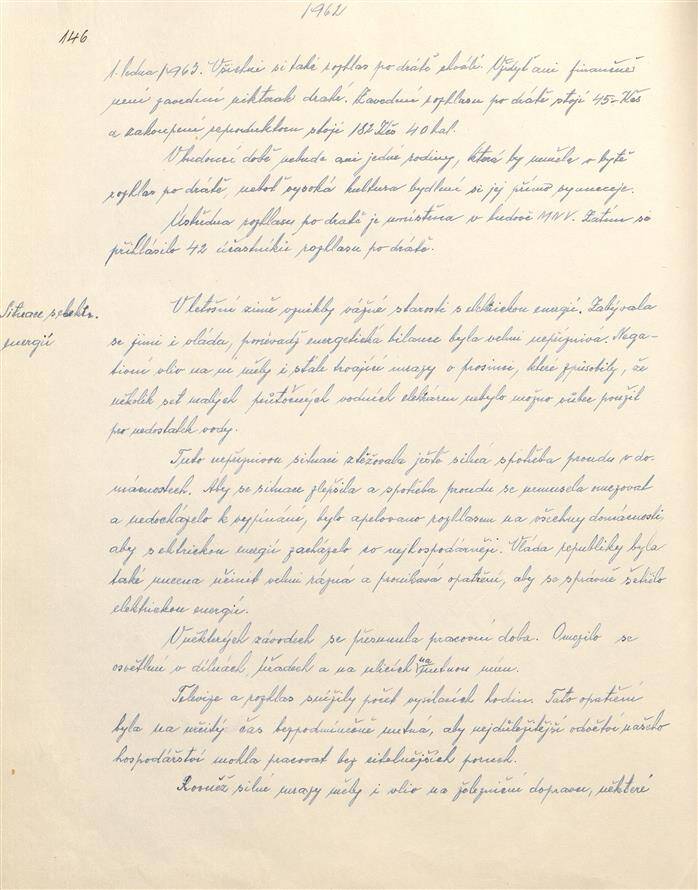 1962
146
1. ledna 1963. Všichni si také rozhlas po drátě chválí. Vždyť ani finančně
není zavedení nikterak drahé. Zavedení rozhlasu po drátě stojí 45.- Kčs
a zakoupení reproduktoru stojí 182 Kčs 40 hal.
V budoucí době nebude ani jedné rodiny, která by neměla v bytě
rozhlas po drátě, neboť vysoká kultura bydlení si jej přímo vynucuje.
Ústředna rozhlasu po drátě je umístěna v budově MNV. Zatím se
přihlásilo 42 účastníků rozhlasu po drátě.
Situace s elektr.
energií
V letošní zimě vznikly vážné starosti s elektrickou energií. Zabývala
se jimi i vláda, poněvadž energetická bilance byla velmi nepříznivá. Nega-
tivní vliv na ni měly i stále trvající mrazy v prosinci, které způsobily, že
několik set malých průtočných vodních elektráren nebylo možno vůbec použít
pro nedostatek vody.
Tuto nepříznivou situaci ztěžovala ještě silná spotřeba proudu v do-
mácnostech. Aby se situace zlepšila a spotřeba proudu se nemusela omezovat
a nedocházelo k vypínání, bylo apelováno rozhlasem na všechny domácnosti,
aby s elektrickou energií zacházelo co nejhospodárněji. Vláda republiky byla
také nucena učinit velmi rázná a pronikavá opatření, aby se správně šetřilo
elektrickou energií.
V některých závodech se přesunula pracovní doba. Omezilo se
osvětlení v dílnách, úřadech a na ulicích na nutnou míru.
Televize a rozhlas snížily počet vysílacích hodin. Tato opatření
byla na určitý čas bezpodmínečně nutná, aby nejdůležitější odvětví našeho
hospodářství mohla pracovat bez citelnějších poruch.
Rovněž silné mrazy měly i vliv na železniční dopravu, některé